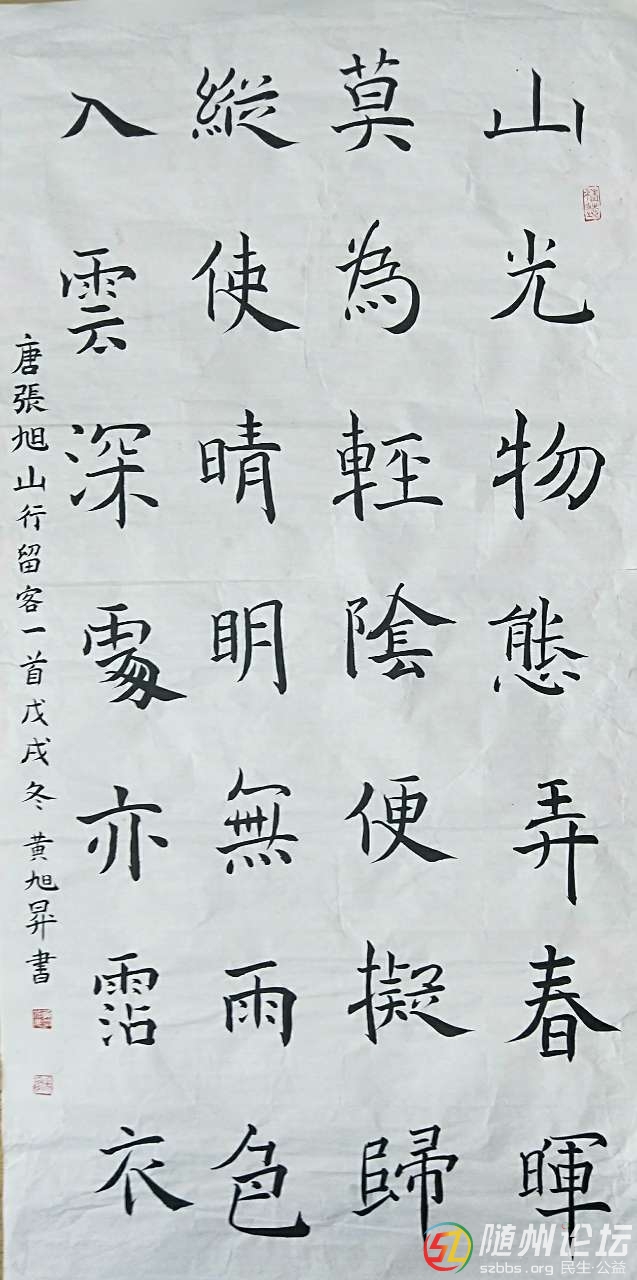 山光物態弄春暉
莫為輕陰便擬歸
縱使晴明無雨色
入雲深處亦霑衣
唐張旭山行留客一首戊戌冬黄旭昇書
随州论坛
szbbs.org 民生·公益